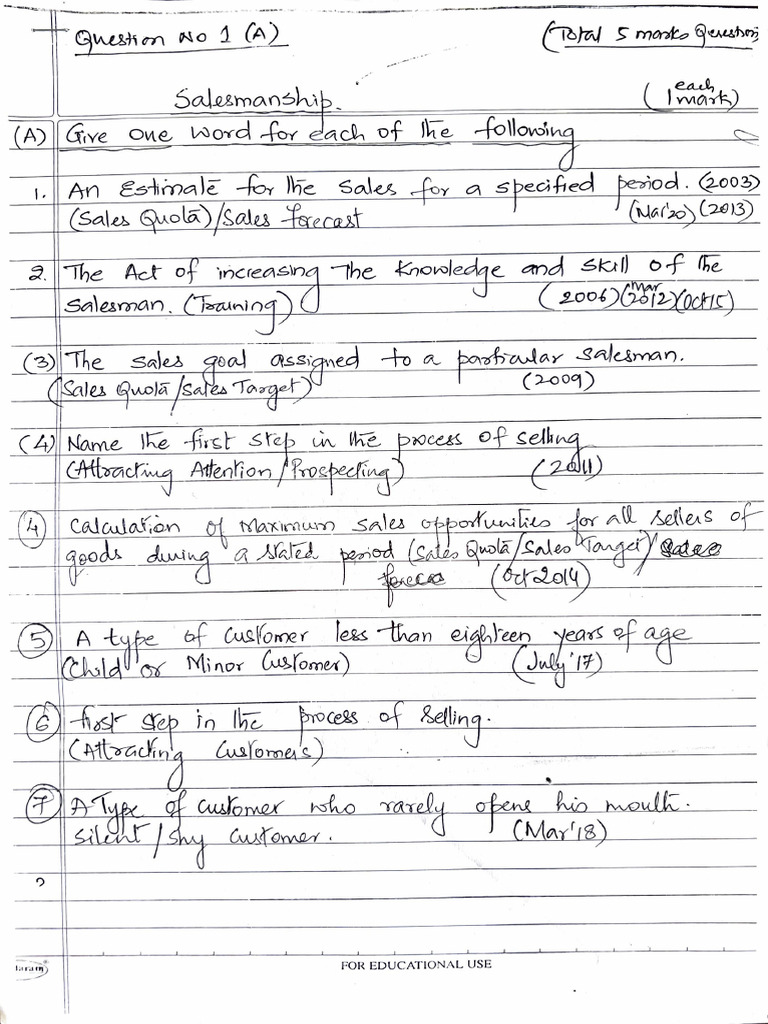 Question No 1 (A) (Total 5 marks Question)
Salesmanship. (each 1 mark)
(A) Give one word for each of the following
1. An Estimate for the Sales for a specified period. (2003)
(Sales Quota)/Sales forecast (Mar'20) (2013)
2. The Act of increasing The Knowledge and Skill of the
Salesman. (Training) (2006) (Mar 2012) (Oct 15)
(3) The sales goal assigned to a particular salesman.
(Sales Quota/Sales Target) (2009)
(4) Name the first step in the process of selling
(Attracting Attention/Prospecting) (2011)
(4) Calculation of Maximum sales opportunities for all sellers of
goods during a stated period (Sales Quota/Sales Target)/
(Oct 2014)
(5) A type of customer less than eighteen years of age
(Child or Minor Customer) (July'17)
(6) first step in the process of selling.
(Attracting Customers)
(7) A Type of customer who rarely opens his mouth.
Silent/Shy customer. (Mar'18)
FOR EDUCATIONAL USE